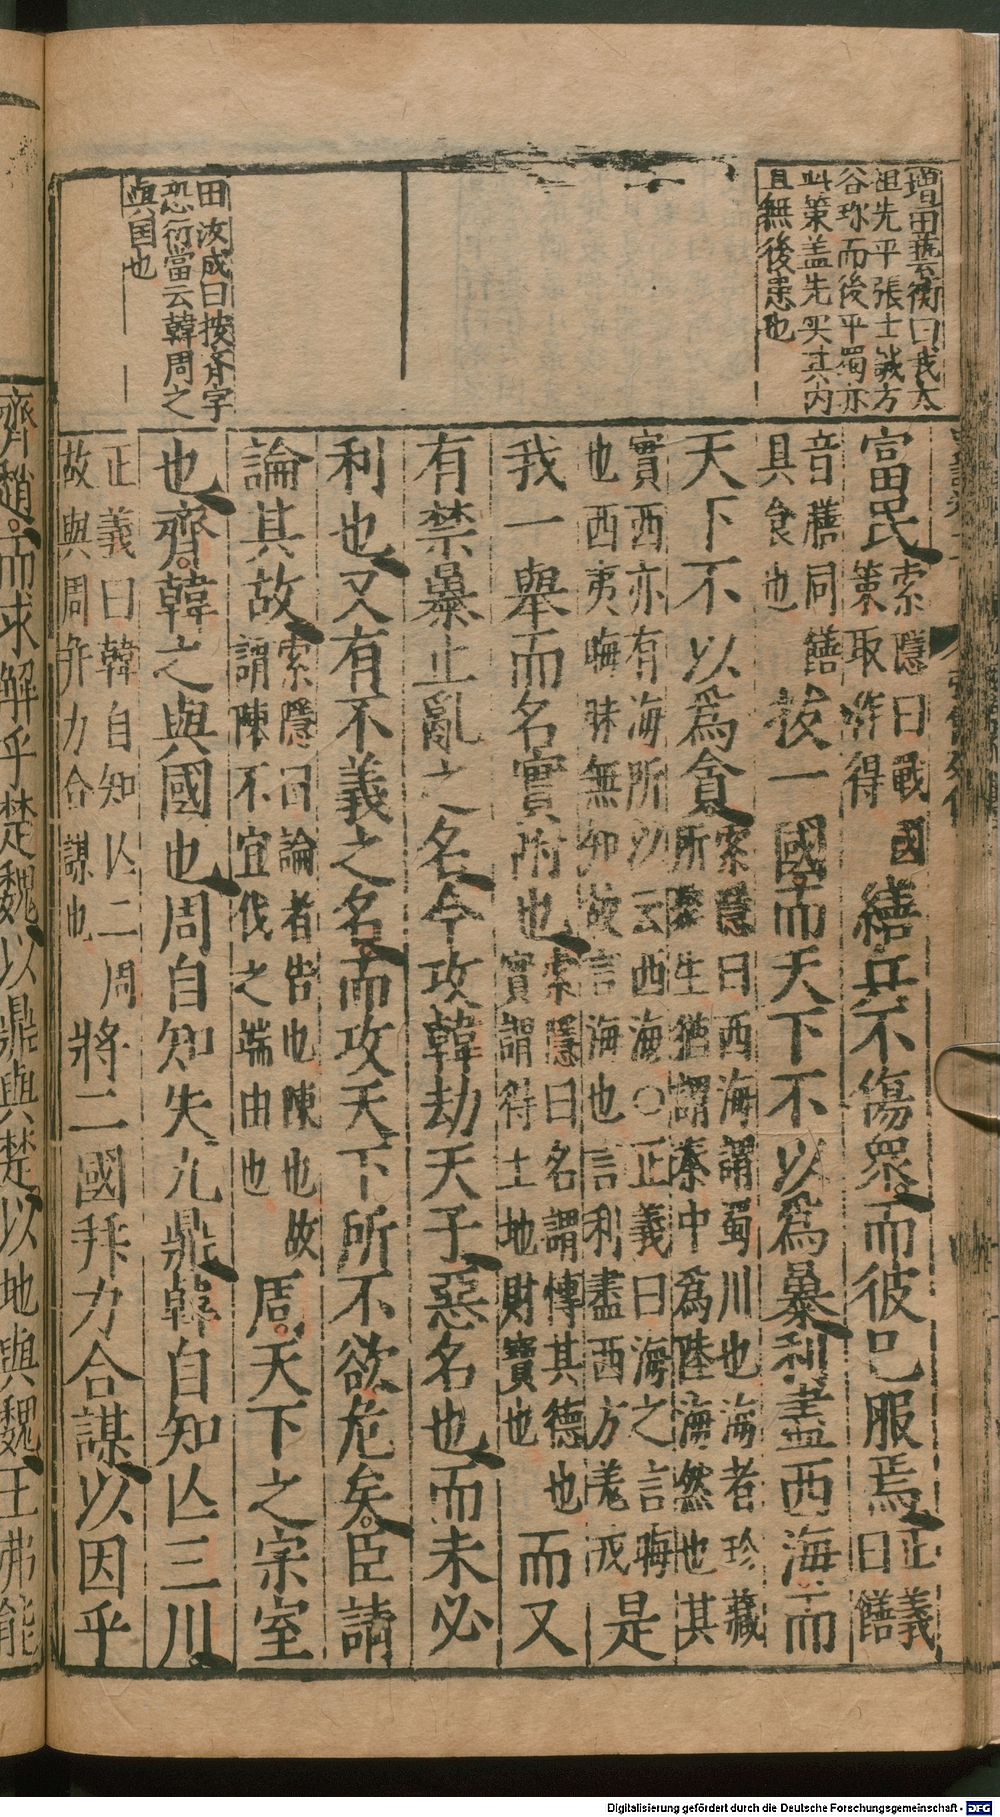 增田藝衡曰我太
祖先平張士誠方
谷珍而後平蜀亦
此策盖先实其内
且無後患也
田汝成曰按齊字
恐衍當云韓周之
與国也
富民索隱曰戰國
策取作得繕兵不傷衆而彼已服焉正義
曰饍
音膳同饍
具食也拔一國而天下不以爲暴利盡西海而
天下不以爲貪索隱曰西海謂蜀川也海者珍藏
所聚生猶謂秦中爲陸海然也其
實西亦有海所以云西海○正義曰海之言晦
也西夷晦昧無知故言海也言利盡西方羌戎是
我一舉而名實附也索隱曰名謂傳其德也
實謂得土地財寶也而又
有禁暴止亂之名今攻韓劫天子惡名也而未必
利也又有不義之名而攻天下所不欲危矣臣請
論其故索隱曰論者告也陳也故
謂陳不宜伐之端由也周天下之宗室
也齊韓之與國也周自知失九鼎韓自知亾三川
正義曰韓自知亾二周
故與周并力合謀也將二國并力合謀以因乎
齊趙而求解乎楚魏以鼎與楚以地與魏王弗能
Digitalisierung gefördert durch die Deutsche Forschungsgemeinschaft - DFG